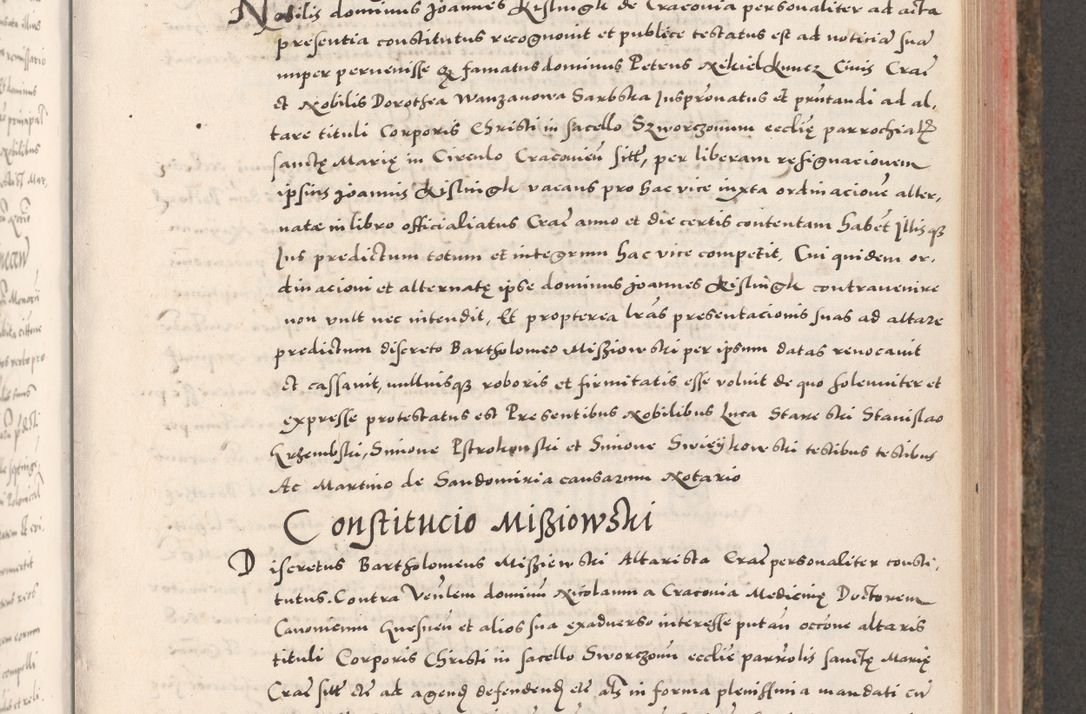 Nobilis dominus Joannes Kislingk de Cracovia personaliter ad acta
presentia constitutus recognovit et publice testatus est ad noticiā suā
nuper pervenisse famatus dominus Petrus Civis Crač
et Nobilis Dorothea Wanzanowa Sarbska Juspr̄onatus et pr̄ntandi ad al,
tare tituli Corporis Christi in sacello Szworczonum ecclię parrochial
sanctę Marię in Circulo Cracovieñ sitt, per liberam resignacionem
ipsius Joannis Kislingk vacans pro hac vice iuxta ordinacionē alter,
natæ in libro officialiatus Crač anno et die certis contentam habet Illisq
Jus predictum totum et integrum hac vice competit, Cui quidem or,
dinacioni et alternatę ipse dominus Joannes Kislingk contravenire
non vult nec intendit, Et propterea lr̄as presentacionis suas ad altare
predictum discreto Bartholomeo Mißiowski per ipsum datas revocavit
et cassavit, nulliusq roboris et firmitatis esse voluit de quo solenniter et
expresse protestatus est Presentibus Nobilibus Luca Stareski Stanislao
Krzembski, Simone Pstrokonski et Simone Swieykowski testibus testibus
Ac Martino de Sandomiria causarum Notario
Constitucio Mißiowski
Discretus Bartholomeus Mißiewski Altarista Crač personaliter consti,
tutus. Contra Veñlem dominū Nicolaum a Cracovia Medicinę Doctorem
Canonicum Gnesneñ et alios sua exadverso interesse putañ occōne altaris
tituli Corporis Christi in sacello Sworczonū ecclię parr̄olis sanctę Marię
Crač sitt etč ad agend defendend etč als in forma plenissima mandati cū